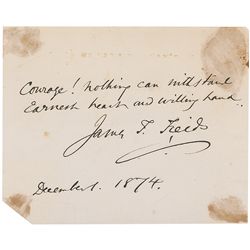 Courage! nothing can withstand
Earnest heart and willing hand.
James T. Fields
December. 1874.